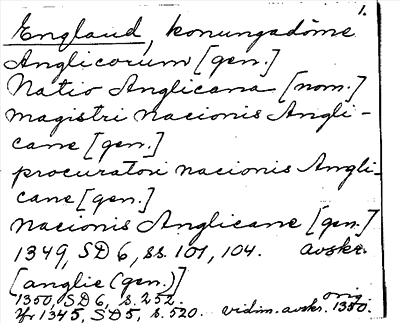 1.
England, konungadöme
Anglicorum [gen.]
Natio Anglicana [nom.]
magistri nacionis Angli-
cane [gen.]
procuratori nacionis Angli-
cane [gen.]
nacionis Anglicane [gen.]
1349, SD 6, ss. 101, 104. avskr.
[anglie (gen.)]
1350, SD 6, s. 252. orig
Yr 1345, SD 5, s. 520. vidim. avskr. 1350.